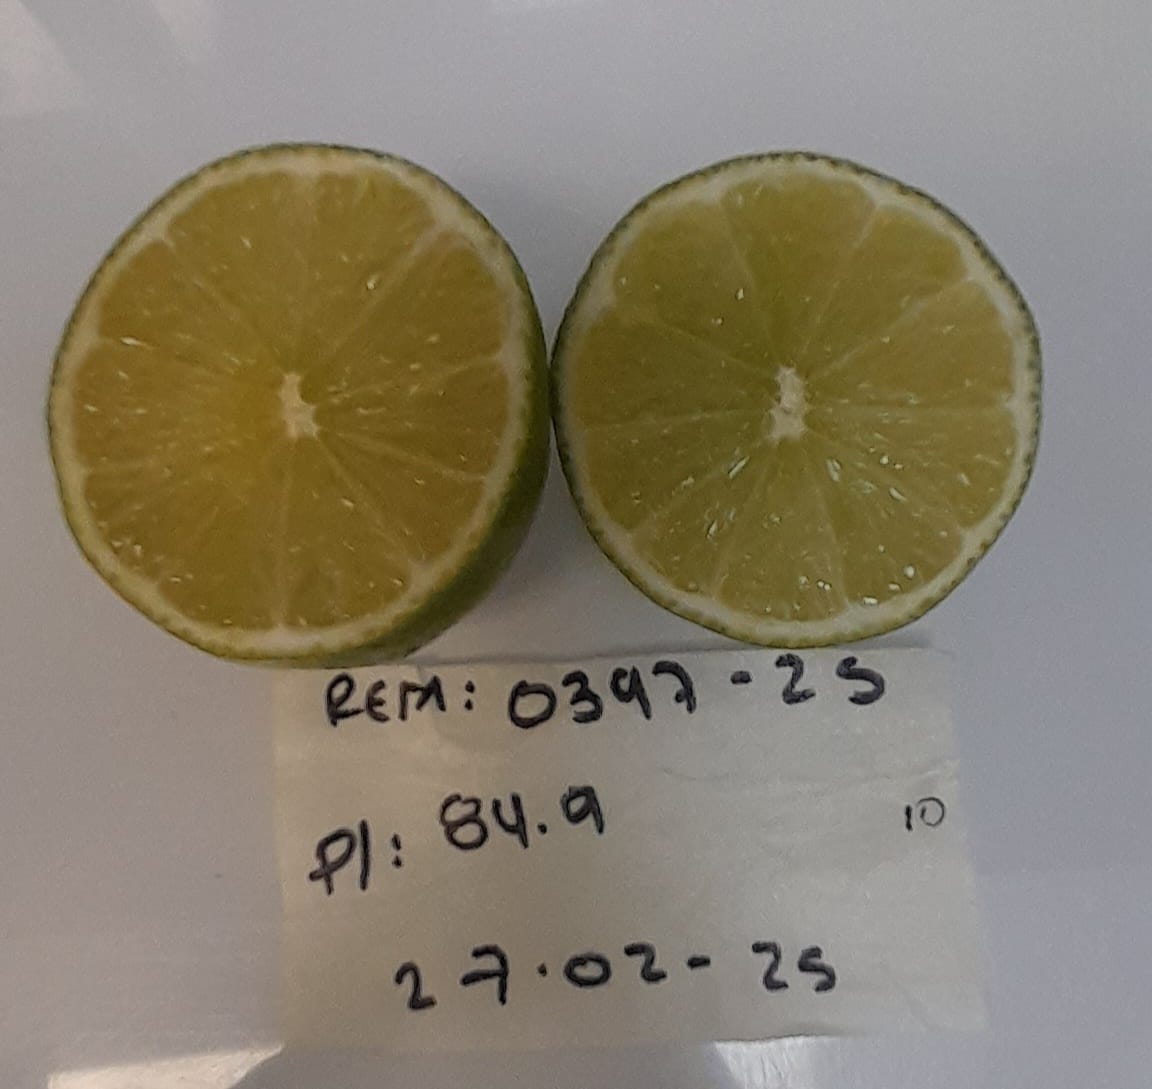 REM: 0397-25
P/: 84.9
10
27.02-25